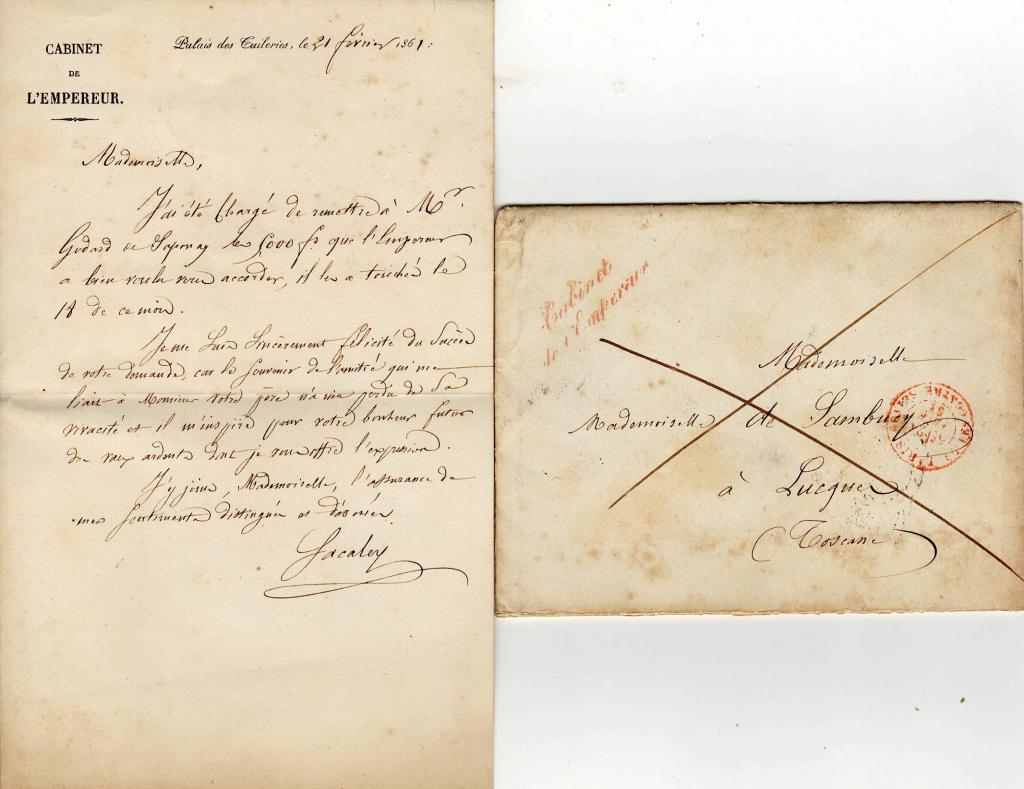 CABINET
DE
L'EMPEREUR.
Palais des Tuileries, le 21 février 1861:
Mademoiselle,
J'ai été chargé de remettre à Mr.
Godard de Saponay les 5,000 fs. que l'Empereur
a bien voulu vous accorder, il les a touchés le
18 de ce mois.
Je me suis sincèrement félicité du succès
de votre demande, car le souvenir de l'amitié qui me
liait à Monsieur votre père n'a rien perdu de sa
vivacité et il m'inspire pour votre bonheur futur
des vœux ardents dont je vous offre l'expression.
J'y joins, Mademoiselle, l'assurance de
mes sentiments distingués et dévoués.
Sacaley
Cabinet
de l'Empereur
Mademoiselle
Mademoiselle de Sambucy
à Lucques
(Toscane)